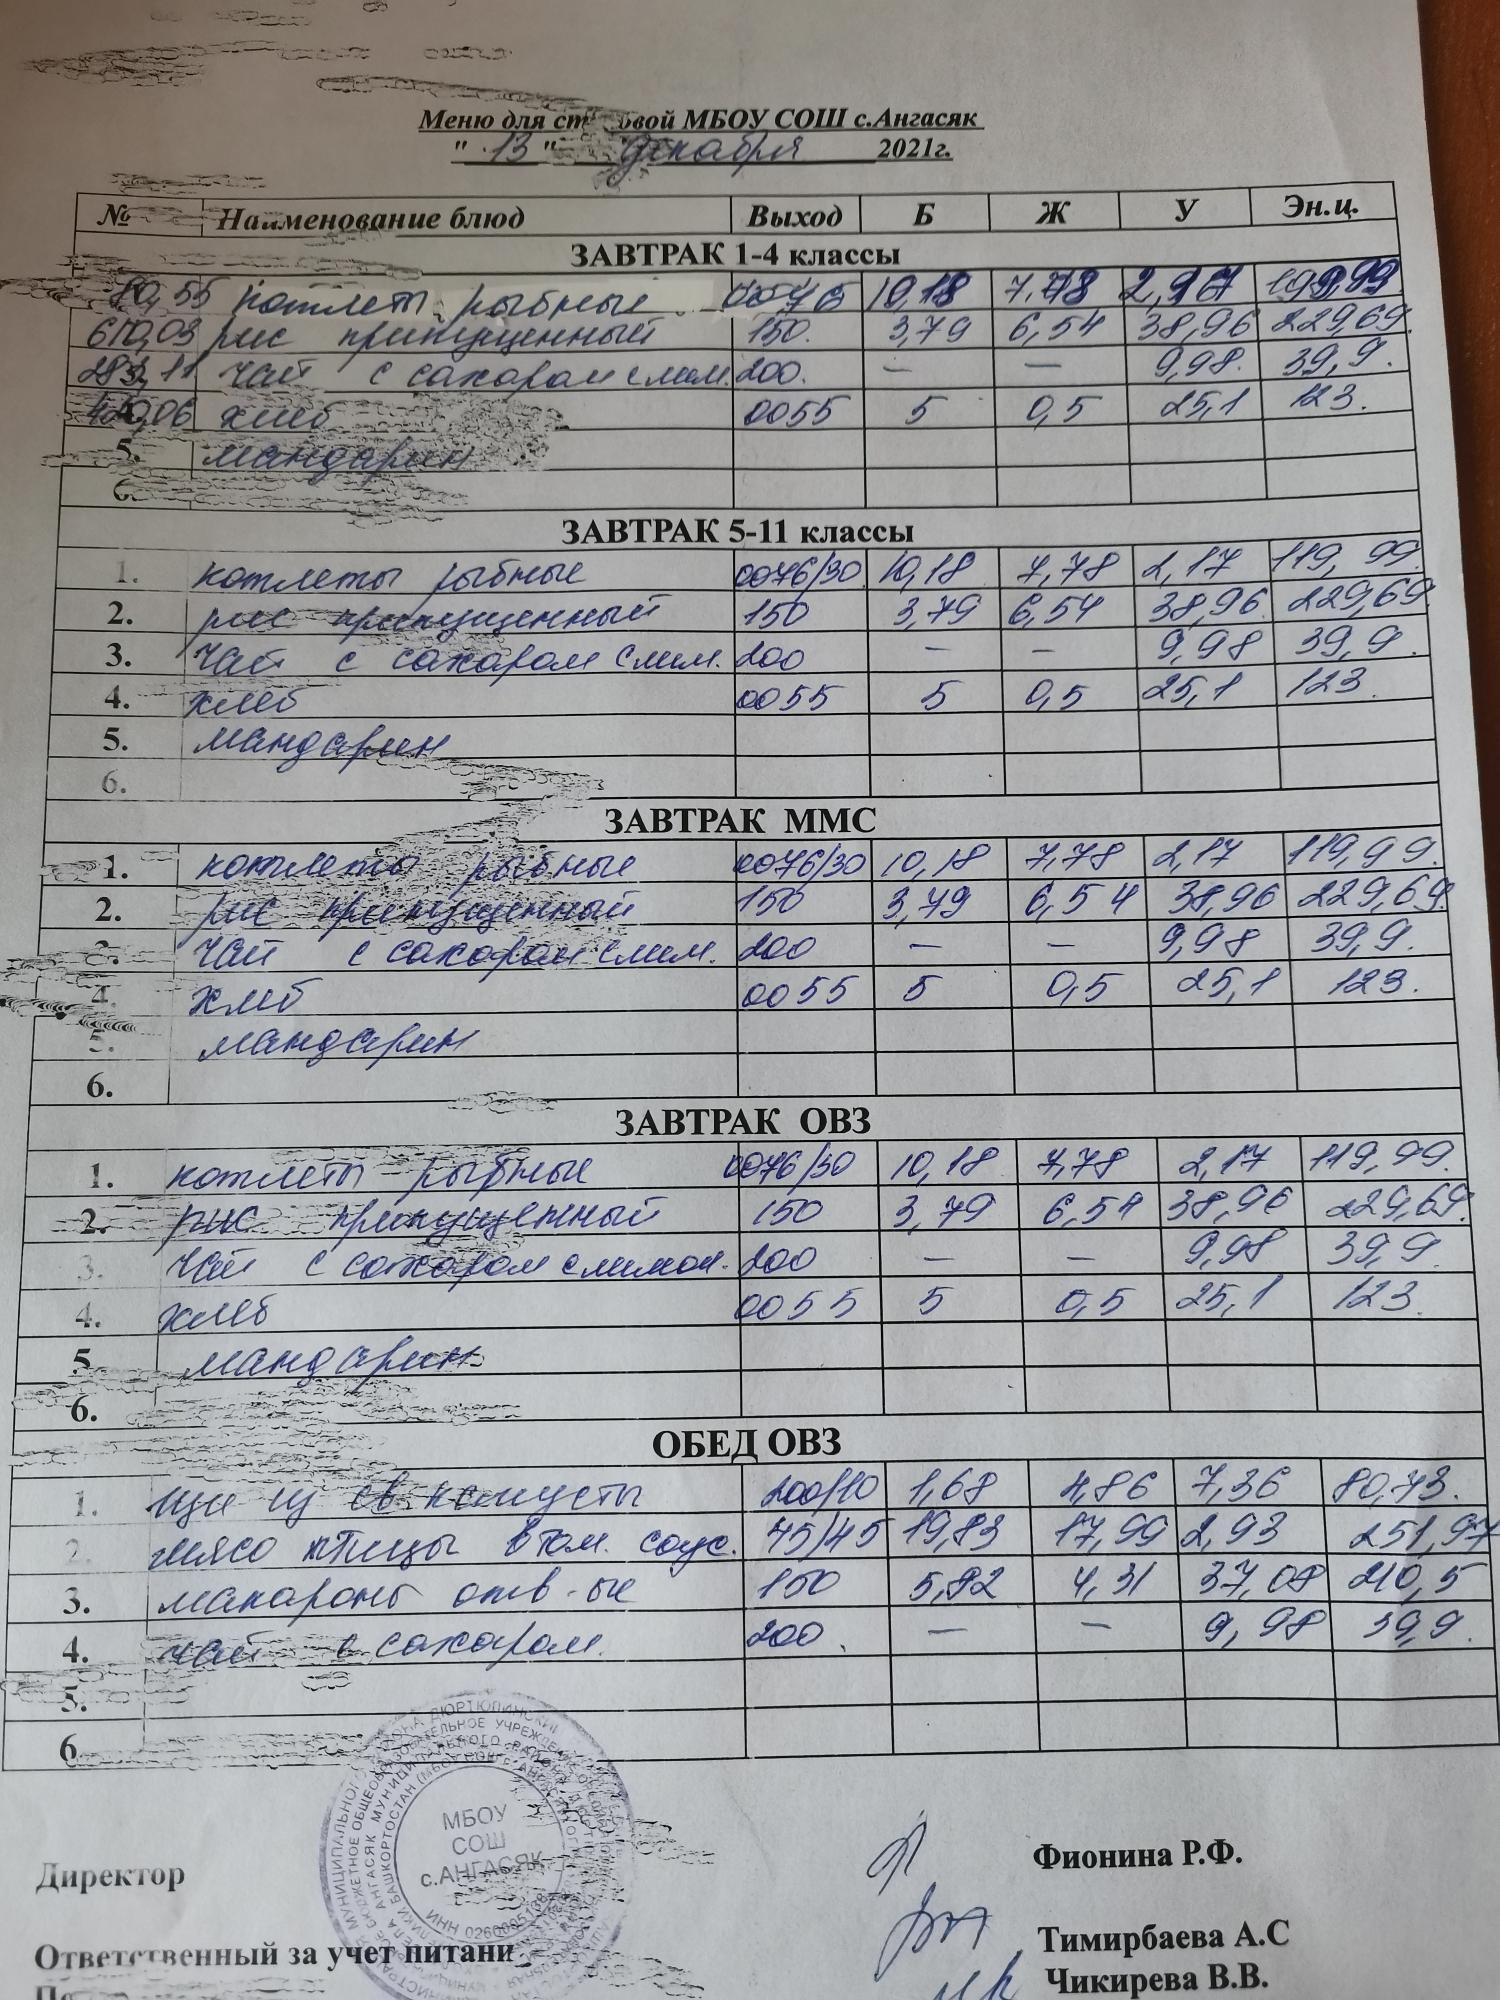 Меню для столовой МБОУ СОШ с.Ангасяк
" 13 " декабря 2021г.
№ Наименование блюд Выход Б Ж У Эн.ц.
ЗАВТРАК 1-4 классы
котлеты рыбные 10,18 7,78
рис припущенный 150. 3,79 6,54 38,96 229,69
чай с сахаром слим. 200. — — 9,98. 39,9.
хлеб 0055 5 0,5 25,1 123.
5. мандарин
6.
ЗАВТРАК 5-11 классы
1. котлеты рыбные 0076/30 10,18 7,78 2,17 119,99
2. рис припущенный 150 3,79 6,54 38,96 229,69
3. чай с сахаром слим. 200 — — 9,98 39,9.
4. хлеб 0055 5 0,5 25,1 123.
5. мандарин
6.
ЗАВТРАК ММС
1. котлеты рыбные 0076/30 10,18 7,78 2,17 119,99.
2. рис припущенный 150 3,79 6,54 38,96 229,69.
3. чай с сахаром слим. 200 — — 9,98 39,9.
4. хлеб 0055 5 0,5 25,1 123.
5. мандарин
6.
ЗАВТРАК ОВЗ
1. котлеты рыбные 0076/30 10,18 7,78 2,17 119,99.
2. рис припущенный 150 3,79 6,54 38,96 229,69.
3. чай с сахаром слимон. 200 — — 9,98 39,9
4. хлеб 0055 5 0,5 25,1 123.
5 мандарин
6.
ОБЕД ОВЗ
1. щи из св. капусты 200/10 1,68 4,86 7,36 80,73.
2. мясо птицы в том. соус. 45/45 19,83 17,99 2,93 251,97
3. макароны отв-ые 150 5,82 4,31 37,08 210,5
4. чай с сахаром. 200. — — 9,98 39,9.
5.
6.
МБОУ
СОШ
с.АНГАСЯК
Директор Фионина Р.Ф.
Ответственный за учет питани Тимирбаева А.С
Чикирева В.В.